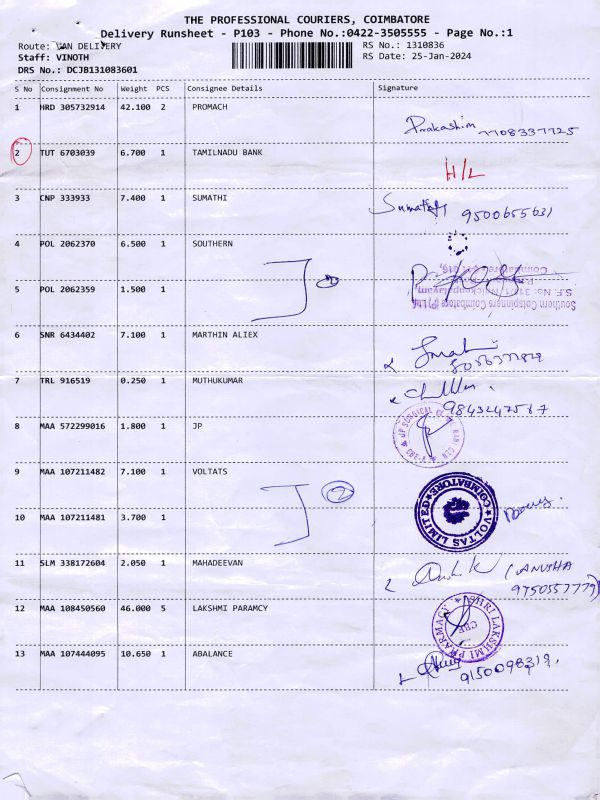 THE PROFESSIONAL COURIERS, COIMBATORE
Delivery Runsheet - P103 - Phone No.:0422-3505555 - Page No.:1
Route: VAN DELIVERY RS No.: 1310836
Staff: VINOTH RS Date: 25-Jan-2024
DRS No.: DCJB131083601
S No Consignment No Weight PCS Consignee Details Signature
1 HRD 305732914 42.100 2 PROMACH
Prakashim 7708337725
2 TUT 6703039 6.700 1 TAMILNADU BANK
H/L
3 CNP 333933 7.400 1 SUMATHI
Sumathi 9500655631
4 POL 2062370 6.500 1 SOUTHERN
5 POL 2062359 1.500 1
2
Southern Cotspinners Coimbatore (P) Ltd
6 SNR 6434402 7.100 1 MARTHIN ALIEX
7 TRL 916519 0.250 1 MUTHUKUMAR
9843247567
8 MAA 572299016 1.800 1 JP
JP SURGICAL
9 MAA 107211482 7.100 1 VOLTATS
2
VOLTAS LIMITED COIMBATORE
10 MAA 107211481 3.700 1
11 SLM 338172604 2.050 1 MAHADEEVAN
(ANUSHA
9750557779)
12 MAA 108450560 46.000 5 LAKSHMI PARAMCY
SHRI LAKSHMI PHARMACY
CBE
13 MAA 107444095 10.650 1 ABALANCE
9150098319.